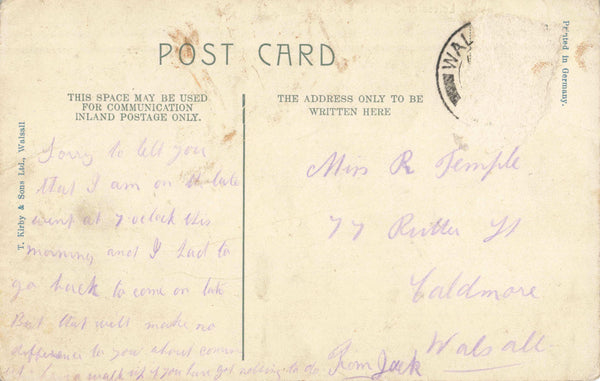 POST CARD
WAL
Printed in Germany.
THIS SPACE MAY BE USED
FOR COMMUNICATION
INLAND POSTAGE ONLY.
THE ADDRESS ONLY TO BE
WRITTEN HERE
T. Kirby & Sons Ltd., Walsall
Sorry to tell you
that I am on late
went at 7 oclock this
morning and I had to
go back to come on late
But that will make no
difference to you about
walk up if you have got nothing to do From Jack
Miss R Temple
77 Rutter St
Caldmore
Walsall